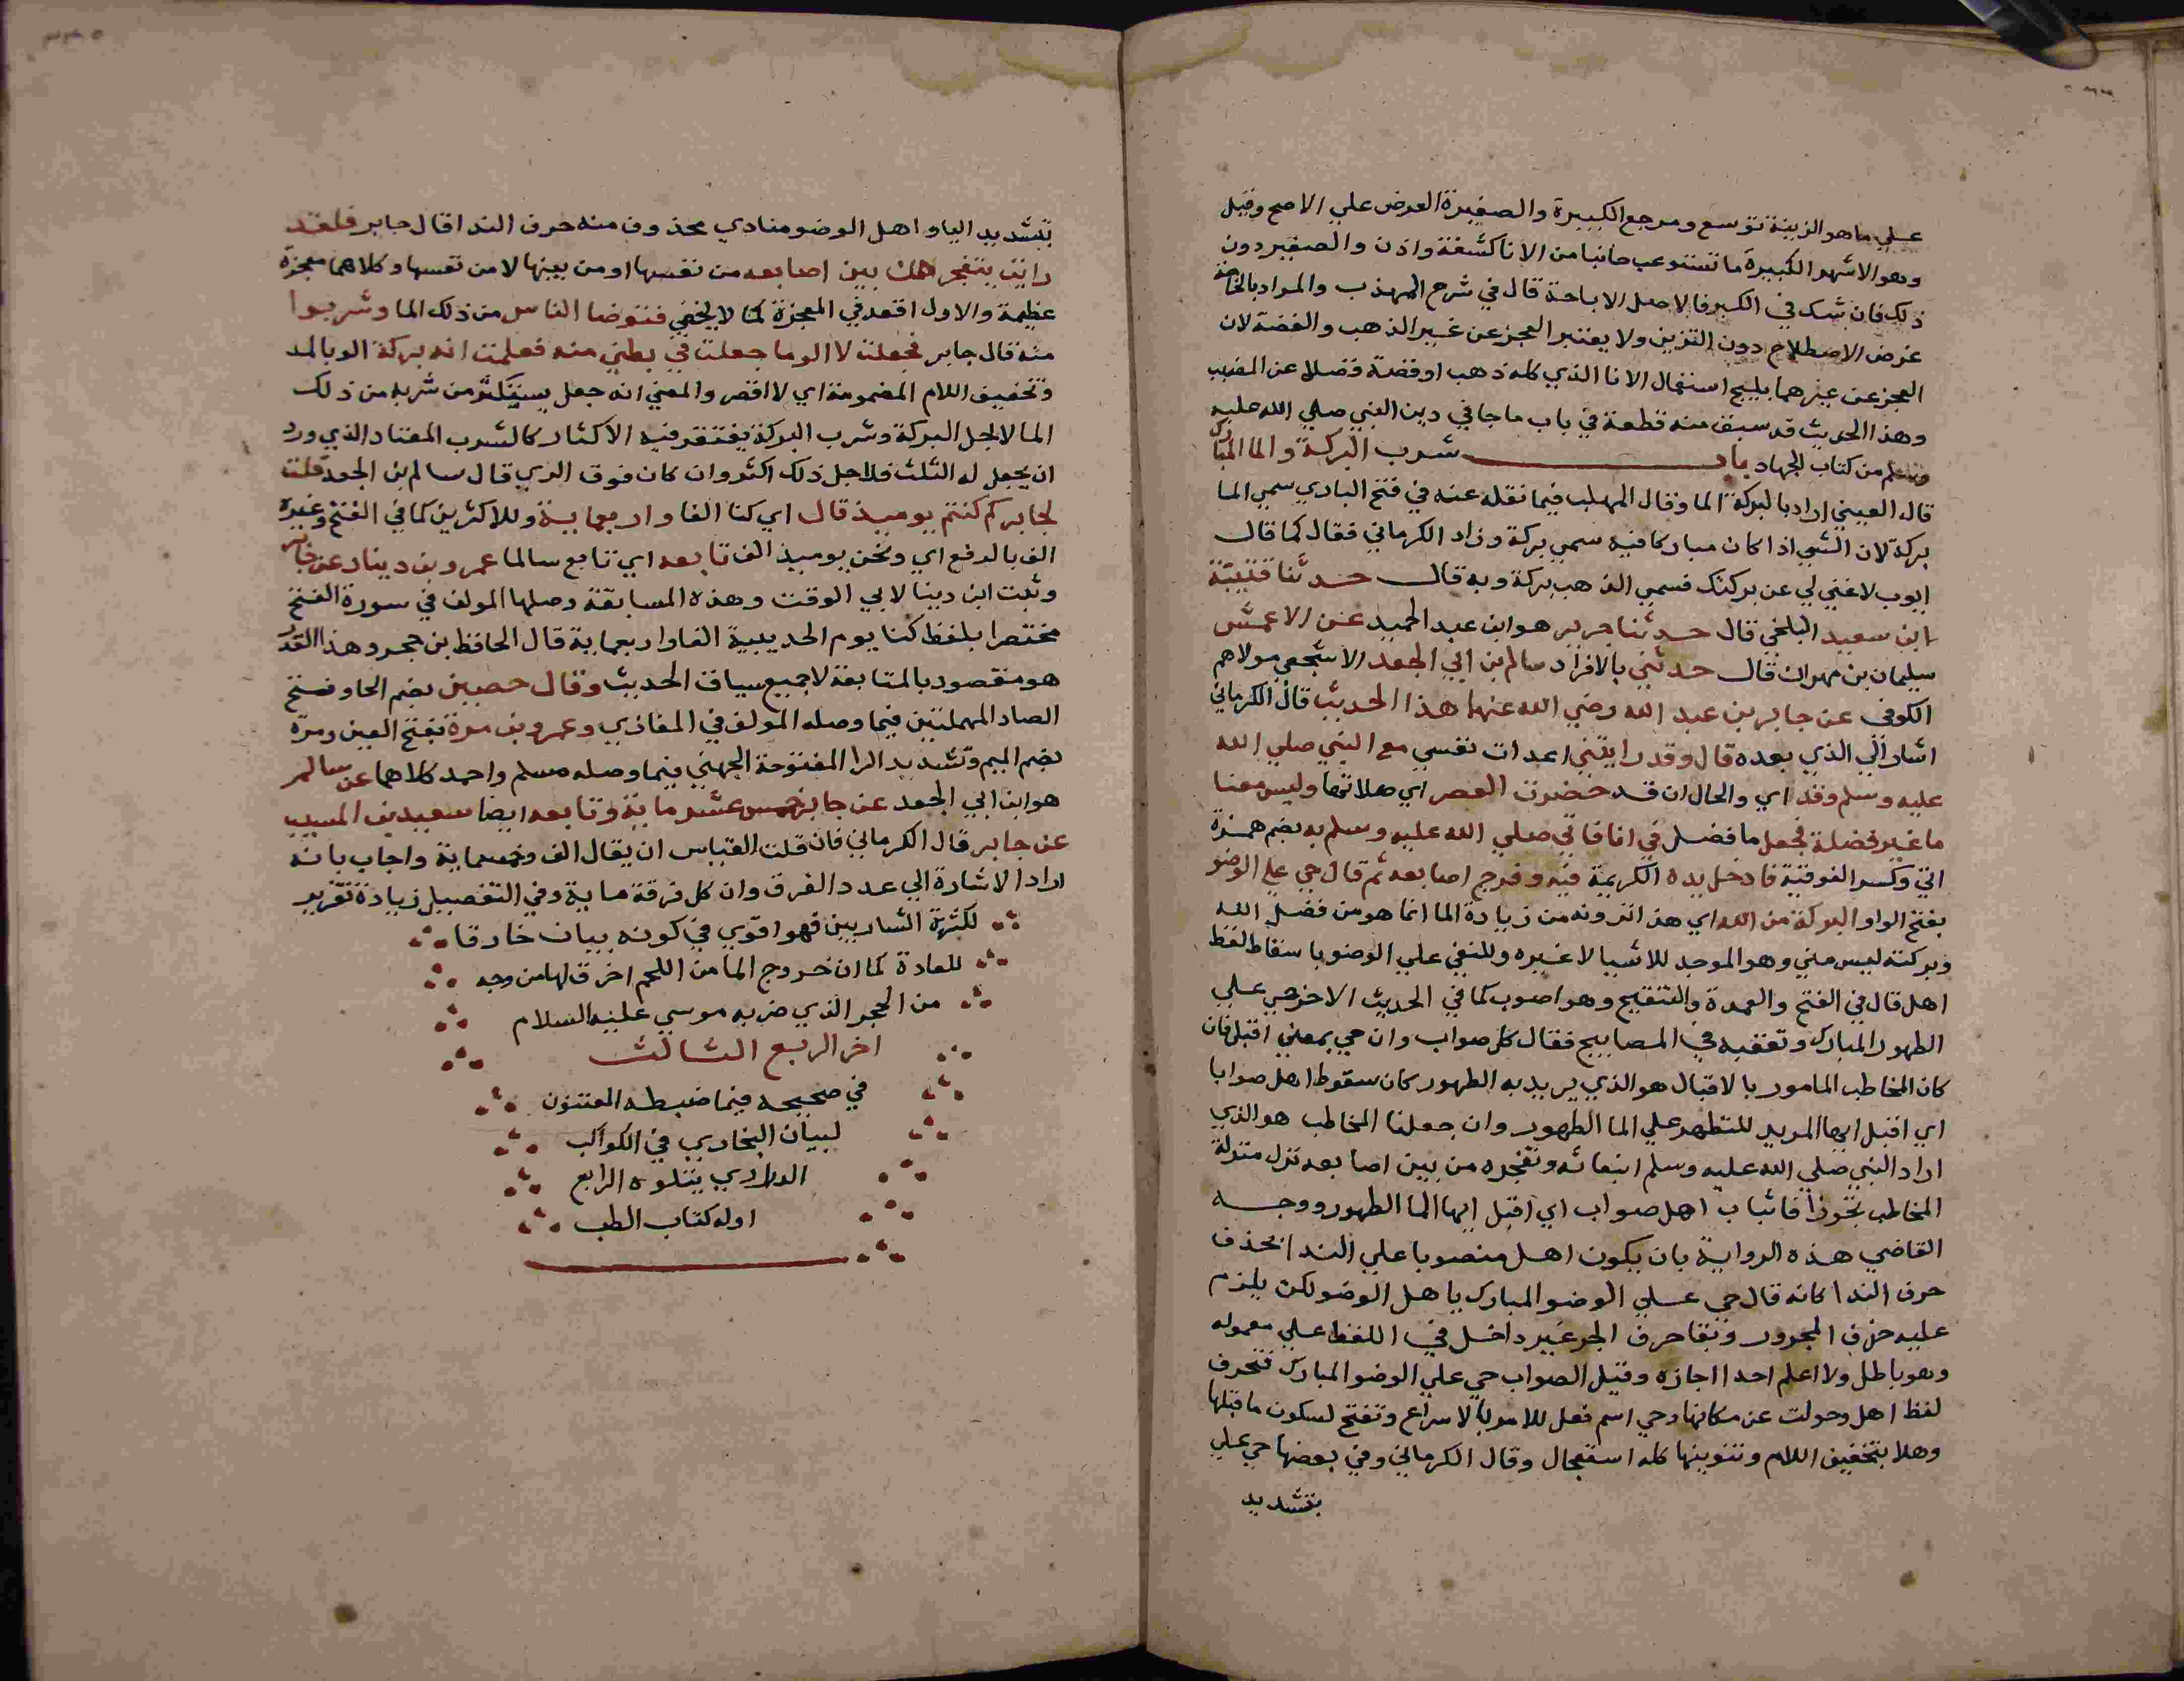 علي ما هو الزينة توسع ومرجع الكبيرة والصغيرة العرض علي الاصح وقيل
وهو الاشهر الكبيرة ما تستوعب جانبا من الانا كشفة واذن والصغير دون
ذلك فان شك في الكبر فالاصل الاباحة قال في شرح المهذب والمراد بالحاجة
غرض الاصطلاح دون التزين ولا يعتبر العجز عن غير الذهب والفضة لان
العجز عن غيرهما يبيح استعمال الانا الذي كله ذهب او فضة فضلا عن المضبب
وهذا الحديث قد سبق منه قطعة في باب ما جا في درع النبي صلي الله عليه
وسلم من كتاب الجهاد باب شرب البركة والما المبارك
قال العيني اراد بالبركة الما وقال المهلب فيما نقله عنه في فتح الباري سمي الما
بركة لان الشي اذا كان مباركا فيه سمي بركة وزاد الكرماني فقال كما قال
ايوب لا غني لي عن بركتك فسمي الذهب بركة وبه قال حدثنا قتيبة
ابن سعيد البلخي قال حدثنا جرير هو ابن عبد الحميد عن الاعمش
سليمان بن مهران قال حدثني بالافراد سالم بن ابي الجعد الاشجعي مولاهم
الكوفي عن جابر بن عبد الله رضي الله عنهما هذا الحديث قال الكرماني
اشار الي الذي بعده قال وقد رايتني اي رات نفسي مع النبي صلي الله
عليه وسلم وقد اي والحال ان قد حضرت العصر اي صلاتها وليس معنا
ما غير فضلة فجعل ما فضل في انا فاتي صلي الله عليه وسلم به بضم همزة
اتي وكسر الفوقية فادخل يده الكريمة فيه وفرج اصابعه ثم قال حي علي الوضو
بفتح الواو البركة من الله اي هذا ترونه من زيادة الما انما هو من فضل الله
وبركته ليس مني وهو الموجد للاشيا لا غيره وللنسفي علي الوضو باسقاط لفظ
اهل قال في الفتح والعمدة والتنقيح وهو اصوب كما في الحديث الاخر حي علي
الطهور المبارك وتعقبه في المصابيح فقال كل صواب وان حي بمعني اقبل فان
كان المخاطب المامور بالاقبال هو الذي يريد به الطهور كان سقوط اهل صوابا
اي اقبل ايها المريد للتطهر علي الما الطهور وان جعلنا المخاطب هو الذي
اراد النبي صلي الله عليه وسلم انبعاثه وتفجره من بين اصابعه نزل منزلة
المخاطب تجوزا فاثبات اهل صواب اي اقبل ايها الما الطهور ووجه
القاضي هذه الرواية بان يكون اهل منصوبا علي الندا بحذف
حرف الندا كانه قال حي علي الوضو المبارك يا هل الوضو لكن يلزم
عليه حذف المجرور وبقا حرف الجر غير داخل في اللفظ علي معموله
وهو باطل ولا اعلم احدا اجازه وقيل الصواب حي علي الوضو المبارك فتحرف
لفظ اهل وحولت عن مكانها وحي اسم فعل للامر بالاسراع وتفتح لسكون ما قبلها
وهلا بتخفيف اللام وتنوينها كلمة استعجال وقال الكرماني وفي بعضها حي علي
بتشديد
بتشديد اليا واهل الوضو منادي محذوف منه حرف الندا قال جابر فلقد
رايت يتفجر الما بين اصابعه من نفسها او من بينها لا من نفسها وكلاهما معجزة
عظيمة والاول اقعد في المعجزة كما لا يخفي فتوضا الناس من ذلك الما وشربوا
منه قال جابر فجعلت لا الو ما جعلت في بطني منه فعلمت انه بركة الو بالمد
وتخفيف اللام المضمومة اي لا اقصر والمعني انه جعل يستكثر من شربه من ذلك
الما لاجل البركة وشرب البركة يغتفر فيه الاكثار كالشرب المعتاد الذي ورد
ان يجعل له الثلث فلاجل ذلك اكثر وان كان فوق الري قال سالم بن الجعد قلت
لجابر كم كنتم يوميذ قال اي كنا الفا واربعماية وللاكثرين كما في الفتح وغيره
الف بالرفع اي ونحن يوميذ الف تابعه اي تابع سالما عمرو بن دينار عن جابر
وثبت ابن دينار لابي الوقت وهذه المسابقة وصلها المولف في سورة الفتح
مختصرا بلفظ كنا يوم الحديبية الفا واربعماية قال الحافظ بن حجر وهذا القدر
هو مقصود بالمتابعة لا جميع سياق الحديث وقال حصين بضم الحا وفتح
الصاد المهملتين فيما وصله المولف في المغازي وعمرو بن مرة بفتح العين ومرة
بضم الميم وتشديد الرا المفتوحة الجهني فيما وصله مسلم واحمد كلاهما عن سالم
هو ابن ابي الجعد عن جابر خمس عشر ماية وتابعه ايضا سعيد بن المسيب
عن جابر قال الكرماني فان قلت القياس ان يقال الف وخمسماية واجاب بانه
اراد الاشارة الي عدد الفرق وان كل فرقة ماية وفي التفصيل زيادة تقرير
لكثرة الشاربين فهو اقوي في كونه بيان خارقا
للعادة كما ان خروج الما من اللحم اخرق لها من وجه
من الحجر الذي ضربه موسي عليه السلام
اخر الربع الثالث
في صحيحه فيما ضبطه المعتنون
لبيان البخاري في الكواكب
الدراري يتلوه الرابع
اوله كتاب الطب